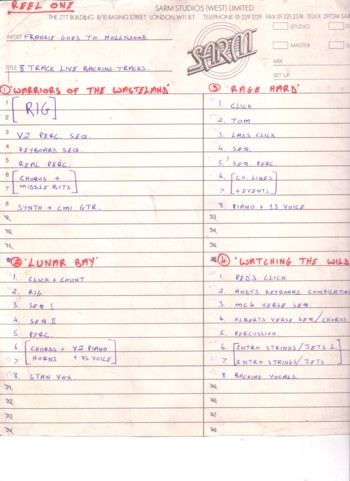 REEL ONE
SARM STUDIOS (WEST) LIMITED
THE ZTT BUILDING 8/10 BASING STREET LONDON W11 1ET TELEPHONE 01 229 1229
ARTIST FRANKIE GOES TO HOLLYWOOD.
SARM
STUDIO
MASTER
MIX
SET UP
TITLE 8 TRACK LIVE BACKING TRACKS.
① 'WARRIORS OF THE WASTELAND'
1 [RIG]
2
3 V2 PERC. SEQ.
4 KEYBOARD SEQ.
5 REAL PERC.
6 [CHORUS +
7 MIDDLE BITS]
8 SYNTH + CMI GTR.
② 'LUNAR BAY'
1. CLICK + COUNT
2. RIG
3. SEQ I
4. SEQ II
5. PERC.
6. [CHORDS + V2 PIANO
7. HORNS + V2 VOICE]
8. STAN VOX.
③ 'RAGE HARD'
1. CLICK
2. TOM
3. LADS CLICK
4. SEQ.
5. SEQ. PERC.
6. [CH. LINES
7. + EVENTS]
8. PIANO + 13 VOICE
④ 'WATCHING THE WILD
1. PED'S CLICK
2. ANDY'S KEYBOARD COMPILATION
3. MC4 VERSE SEQ.
4. ALBERTS VERSE SEQ/CHORUS
5. PERCUSSION.
6. [INTRO STRINGS/JETS L
7. INTRO STRINGS/JETS]
8. BACKING VOCALS.